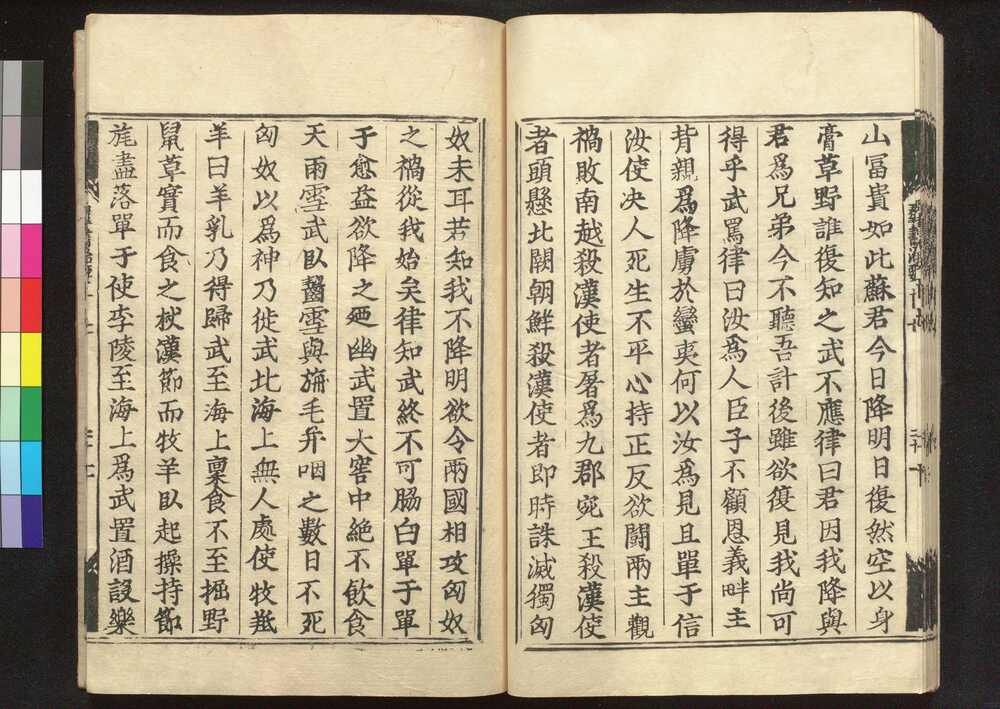 山冨貴如此蘇君今日降明日復然空以身
膏草野誰復知之武不應律曰君因我降與
君爲兄弟今不聽吾計後雖欲復見我尚可
得乎武罵律曰汝爲人臣子不顧恩義畔主
背親爲降虜於蠻夷何以汝爲見且單于信
汝使决人死生不平心持正反欲鬪兩主觀
禍敗南越殺漢使者屠爲九郡宛王殺漢使
者頭懸北闕朝鮮殺漢使者即時誅滅獨匈
奴未耳若知我不降明欲令兩國相攻匈奴
之禍從我始矣律知武終不可脇白單于單
于愈益欲降之廼幽武置大窖中絶不飲食
天雨雪武臥齧雪與旃毛并咽之數日不死
匈奴以爲神乃徙武北海上無人處使牧羝
羊曰羊乳乃得歸武至海上稟食不至掘野
鼠草實而食之杖漢節而牧羊臥起操持節
旄盡落單于使李陵至海上爲武置酒設樂